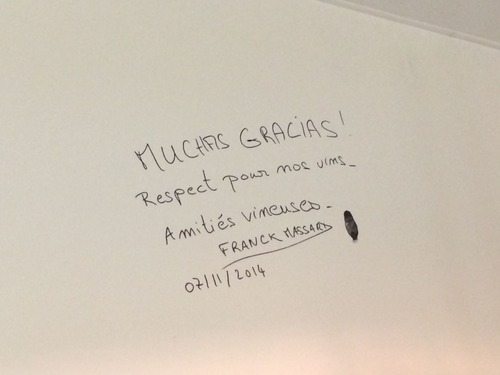 MUCHAS GRACIAS!
Respect pour nos vins_
Amitiés vineuses_
FRANCK MASSARD
07/11/2014